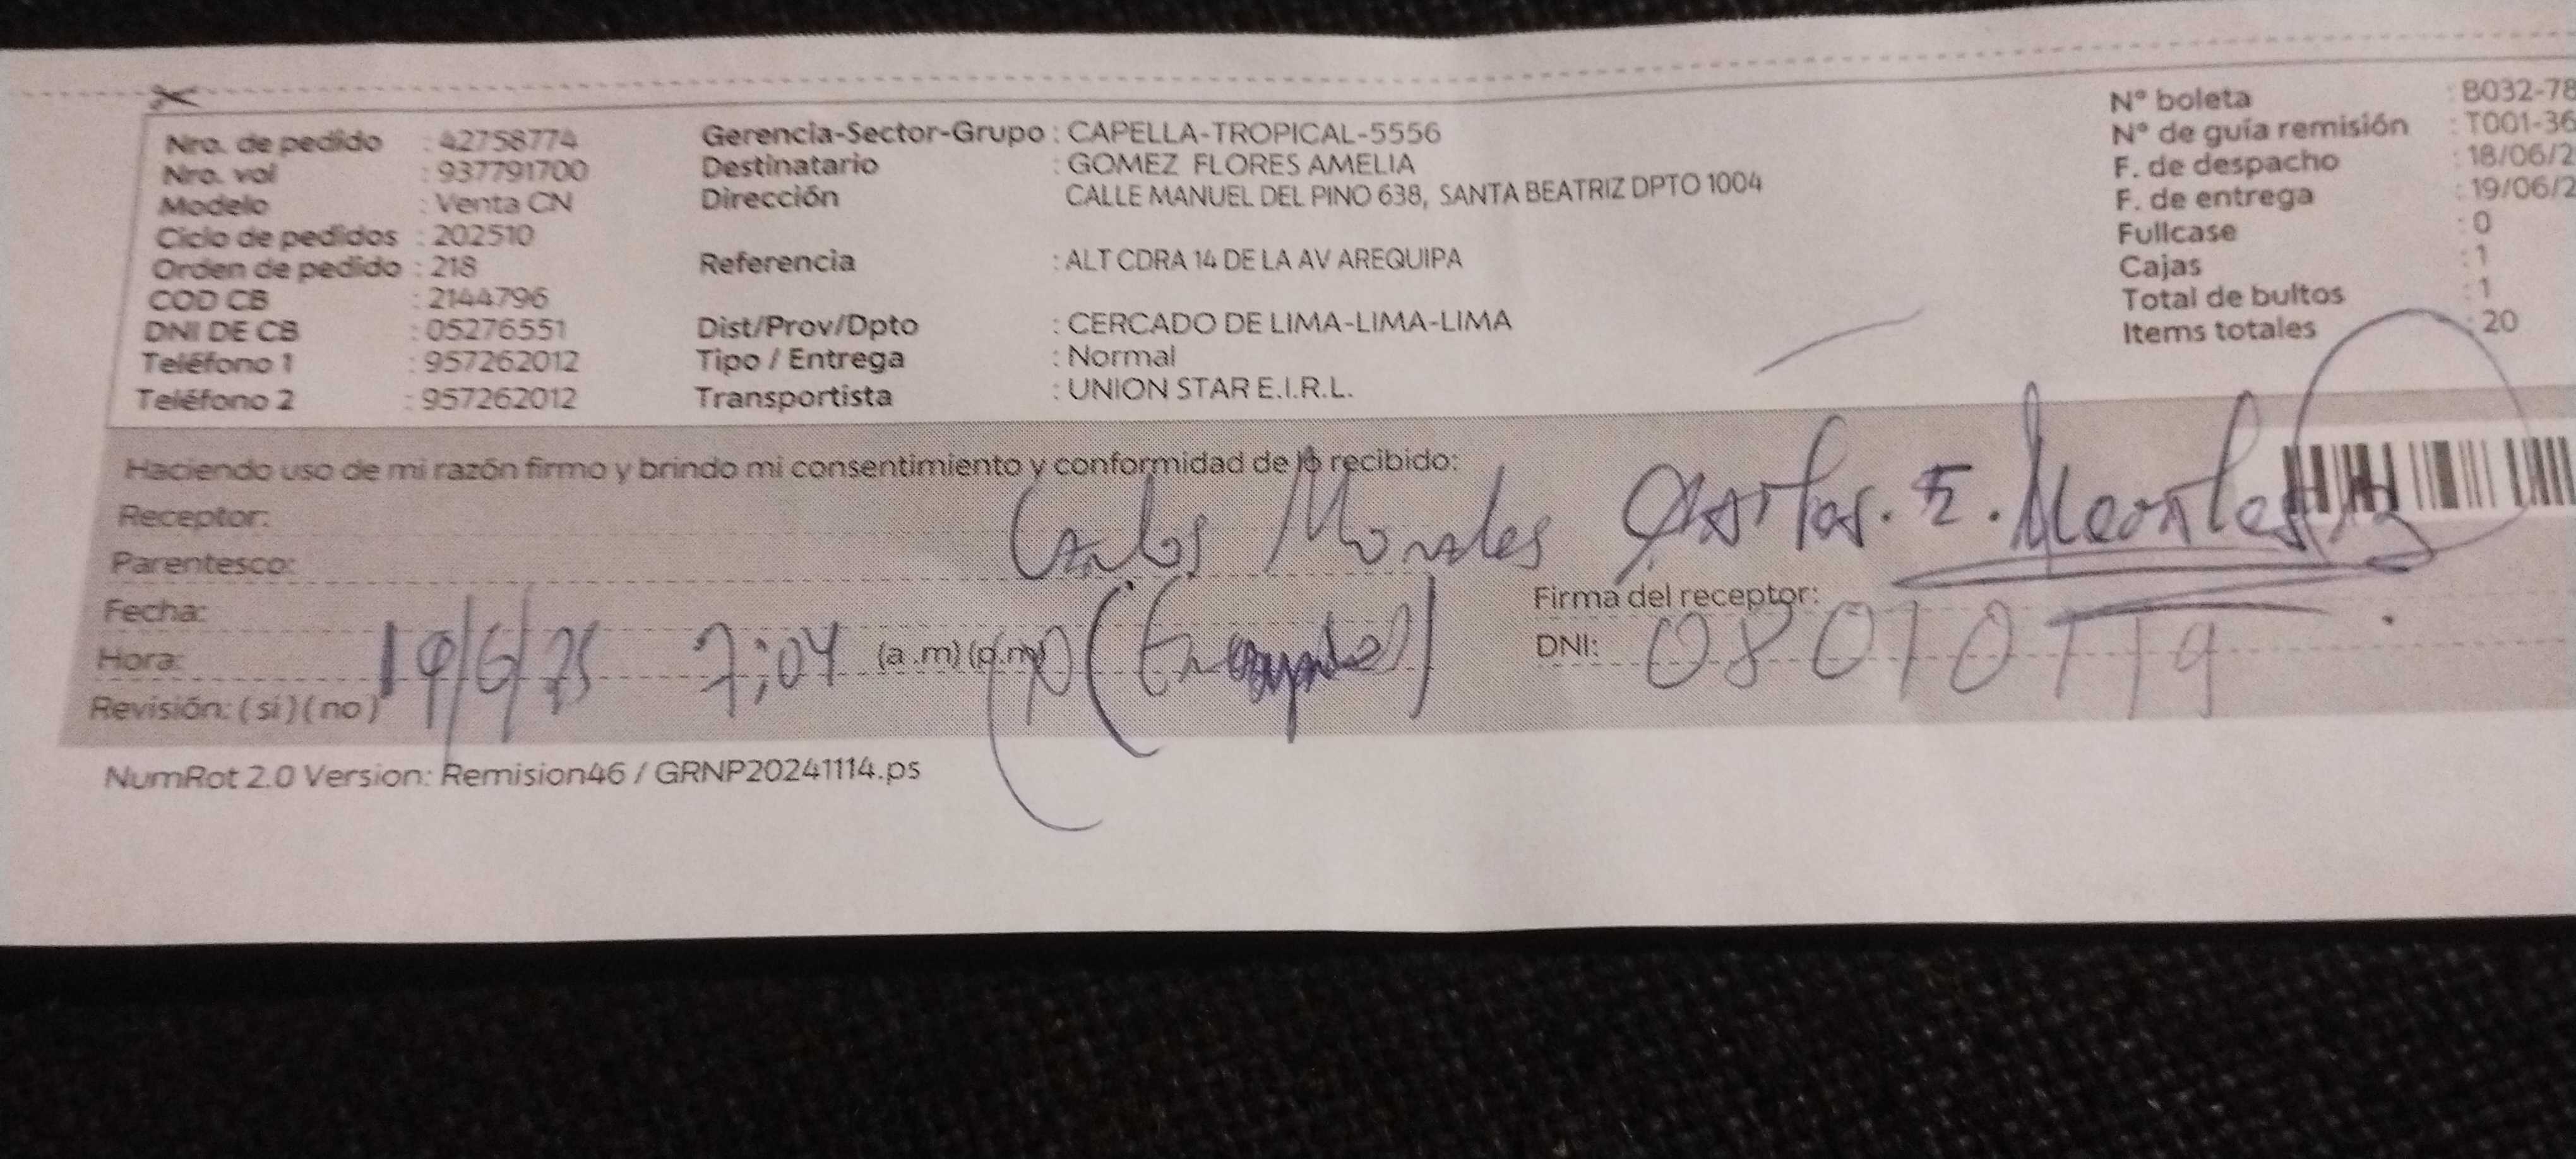 Nro. de pedido : 42758774
Nro. vol : 937791700
Modelo : Venta CN
Ciclo de pedidos : 202510
Orden de pedido : 218
COD CB : 2144796
DNI DE CB : 05276551
Teléfono 1 : 957262012
Teléfono 2 : 957262012
Gerencia-Sector-Grupo : CAPELLA-TROPICAL-5556
Destinatario : GOMEZ FLORES AMELIA
Dirección CALLE MANUEL DEL PINO 638, SANTA BEATRIZ DPTO 1004
Referencia : ALT CDRA 14 DE LA AV AREQUIPA
Dist/Prov/Dpto : CERCADO DE LIMA-LIMA-LIMA
Tipo / Entrega : Normal
Transportista : UNION STAR E.I.R.L.
N° boleta : B032-78
N° de guía remisión : T001-36
F. de despacho : 18/06/2
F. de entrega : 19/06/2
Fullcase : 0
Cajas : 1
Total de bultos : 1
Items totales : 20
Haciendo uso de mi razón firmo y brindo mi consentimiento y conformidad de lo recibido:
Receptor: Carlos Morales
Parentesco:
Fecha: 19/6/25
Hora: 7:04 (a.m) (p.m)
Revisión: ( si ) ( no )
Carlos. E. Morales
Firma del receptor:
DNI: 08010119
NumRot 2.0 Version: Remision46 / GRNP20241114.ps